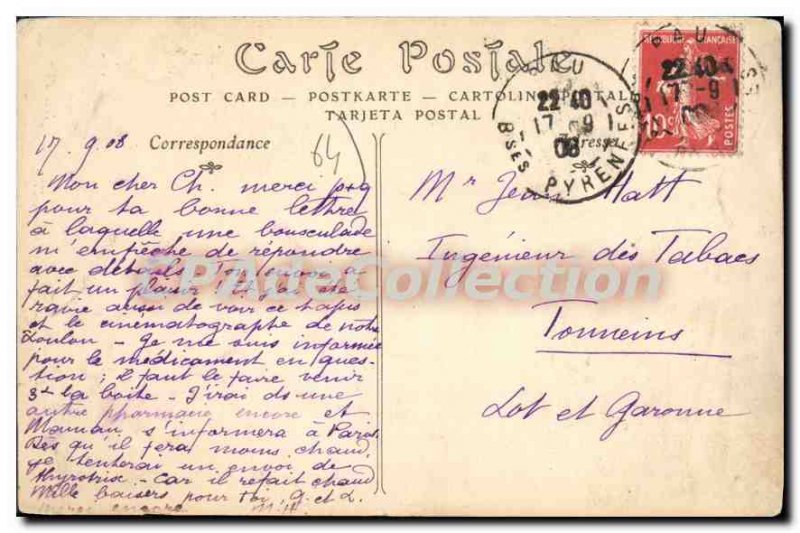 Carte Postale
POST CARD — POSTKARTE — CARTOLINA POSTALE
TARJETA POSTAL
17.9.08
Correspondance
64
Mon cher Ch. merci
pour ta bonne lettre
à laquelle une bousculade
m'empêche de répondre
avec détails
fait un plaisir
de voir ce tapis
et le cinematographe de notre
Loulou - Je me suis informée
pour le médicament en ques-
tion ; il faut le faire venir
3f la boite - J'irai ds une
autre pharmacie encore et
Maman s'informera à
Dès qu'il fera moins chaud,
je tenterai un envoi de
Car il refait chaud
Mille baisers pour toi, g. et L.
merci encore M.H.
Mr Jean Hatt
Ingénieur des Tabacs
Tonneins
Lot et Garonne
PAU
22 40
17 -9
08
BSES PYRENEES
REPUBLIQUE FRANÇAISE
10c
POSTES
PAU
22 40
17 -9
CPArteCollection